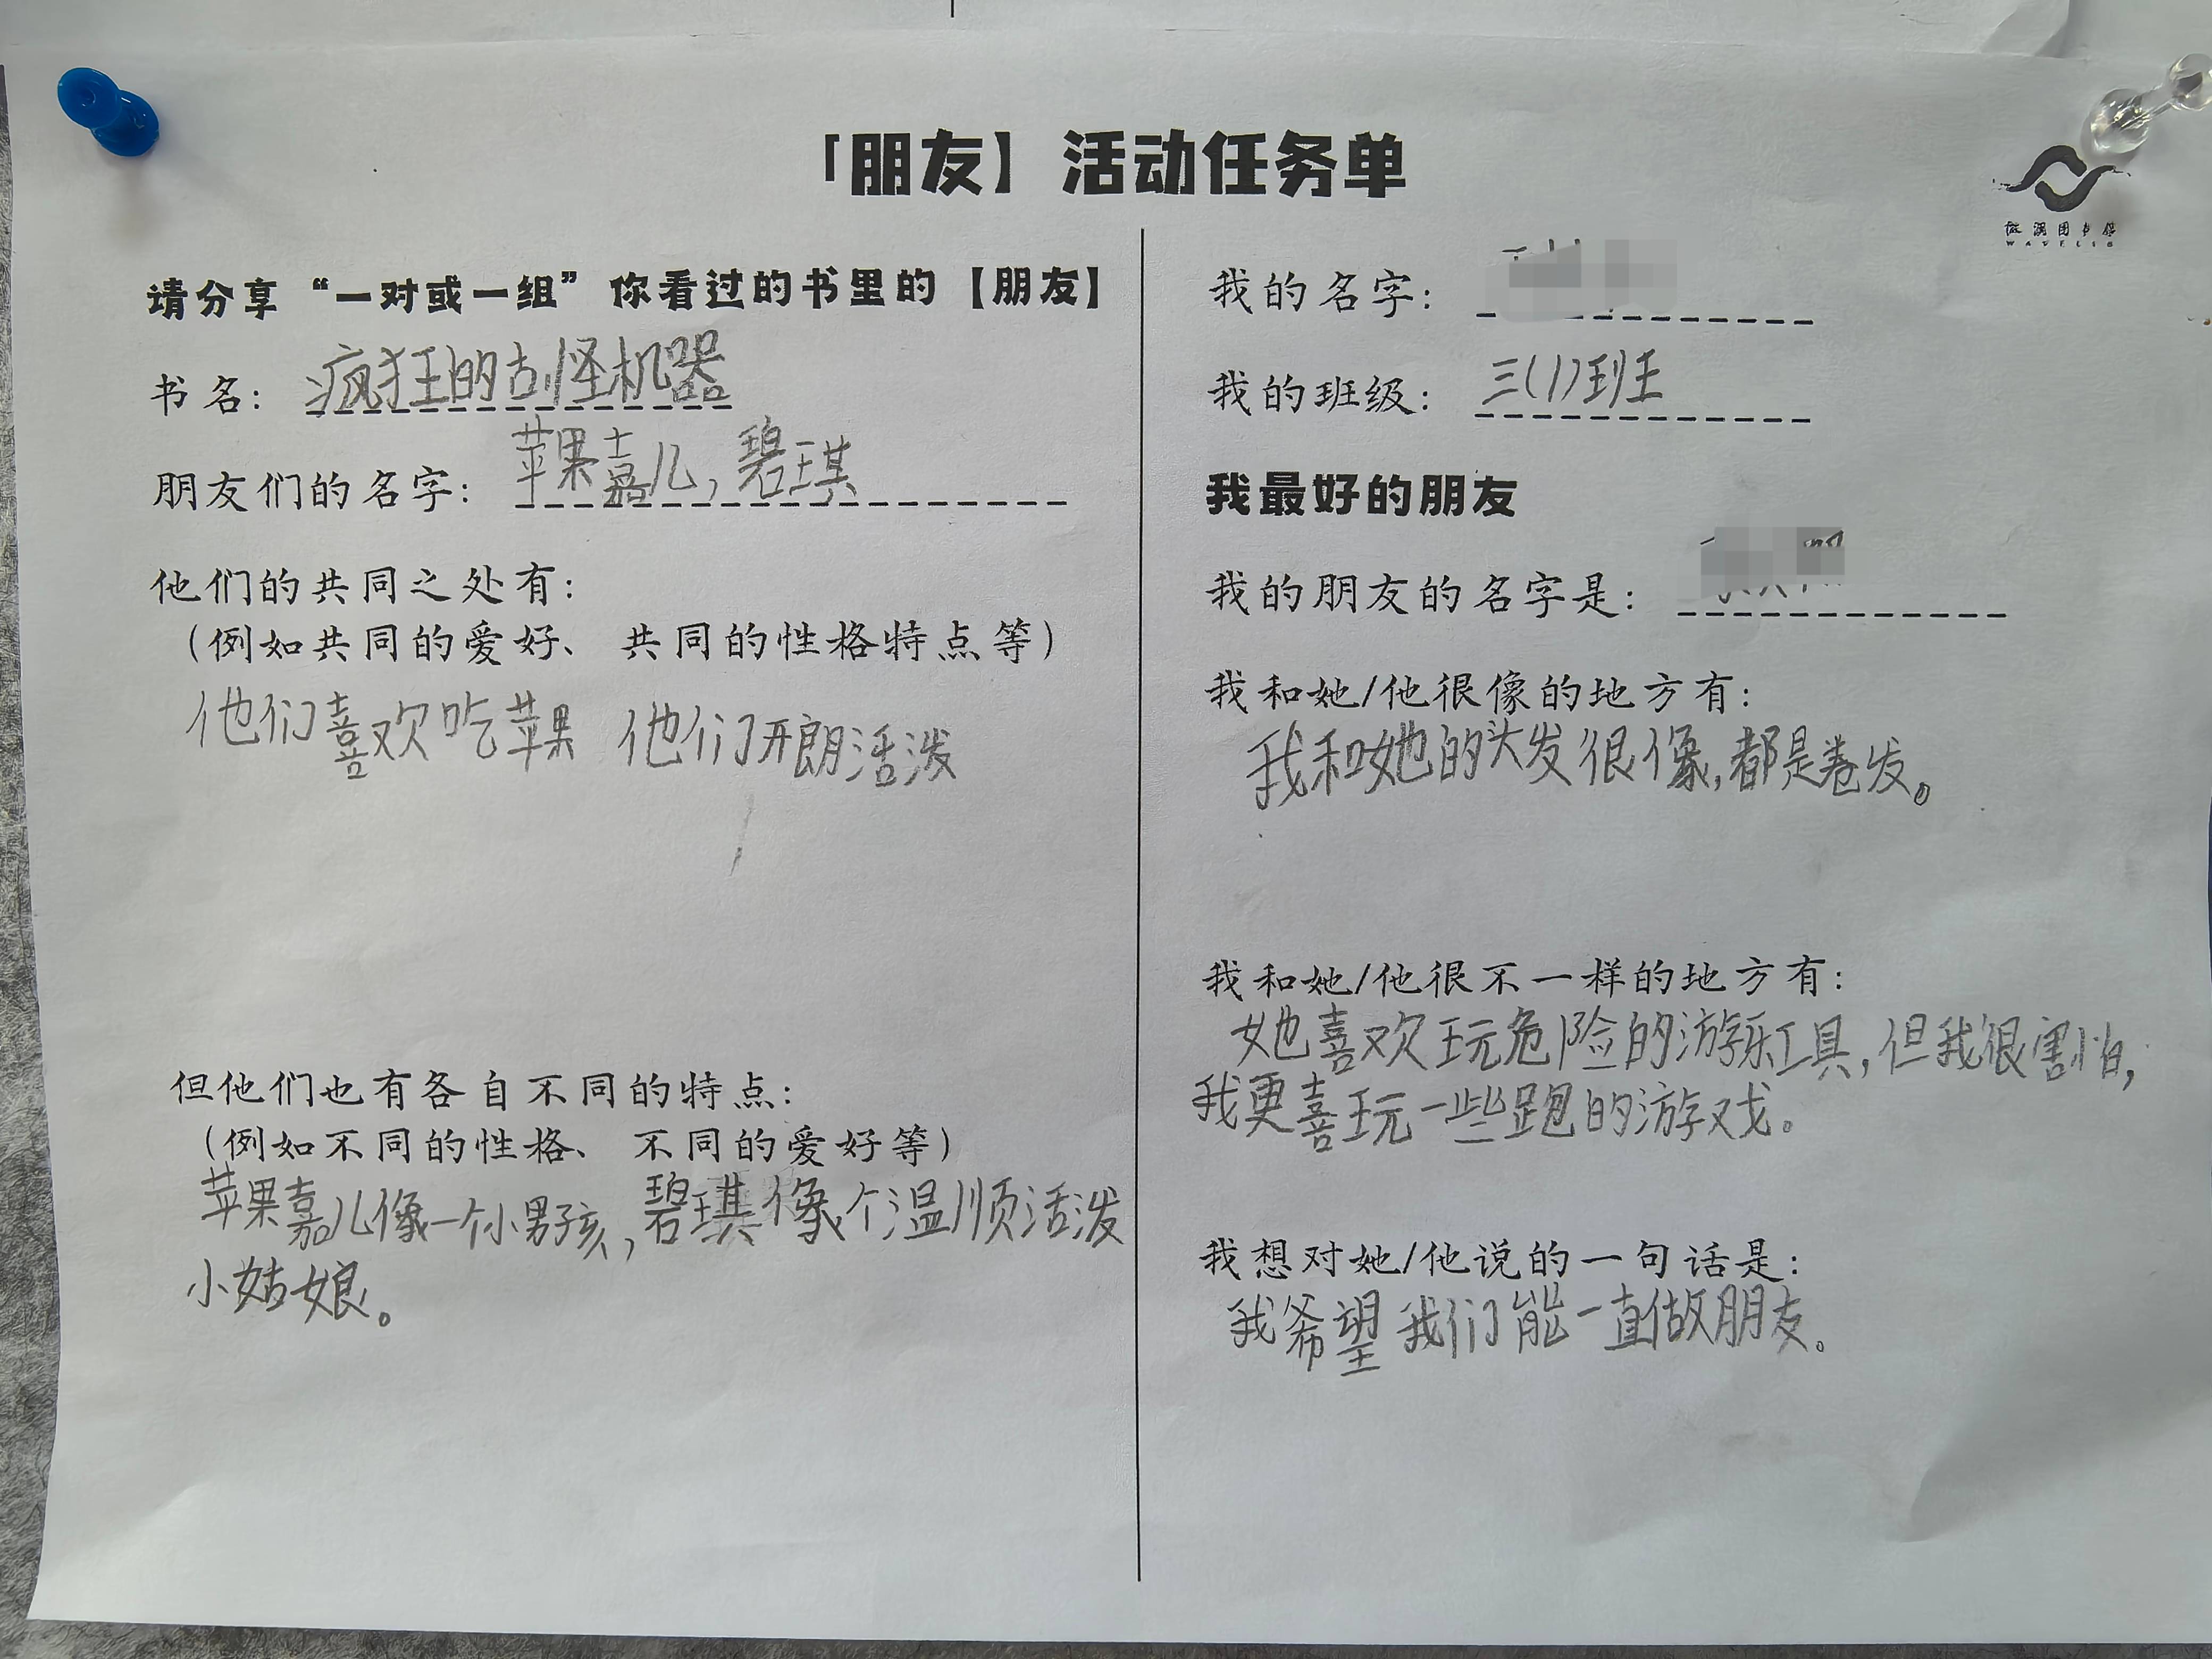 「朋友】活动任务单
请分享“一对或一组”你看过的书里的【朋友】
书名：疯狂的古怪机器
朋友们的名字：苹果嘉儿，碧琪
他们的共同之处有：
（例如共同的爱好、共同的性格特点等）
他们喜欢吃苹果 他们开朗活泼
但他们也有各自不同的特点：
（例如不同的性格、不同的爱好等）
苹果嘉儿像一个小男孩，碧琪像个温顺活泼
小姑娘。
WAVELIB
我的名字：
我的班级：三(1)班
我最好的朋友
我的朋友的名字是：
我和她/他很像的地方有：
我和她的头发很像，都是卷发。
我和她/他很不一样的地方有：
她喜欢玩危险的游乐工具，但我很害怕，
我更喜玩一些跑的游戏。
我想对她/他说的一句话是：
我希望我们能一直做朋友。